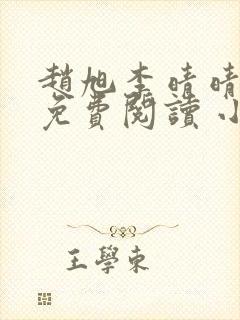 趙旭李晴晴
免費閱讀小
王學東